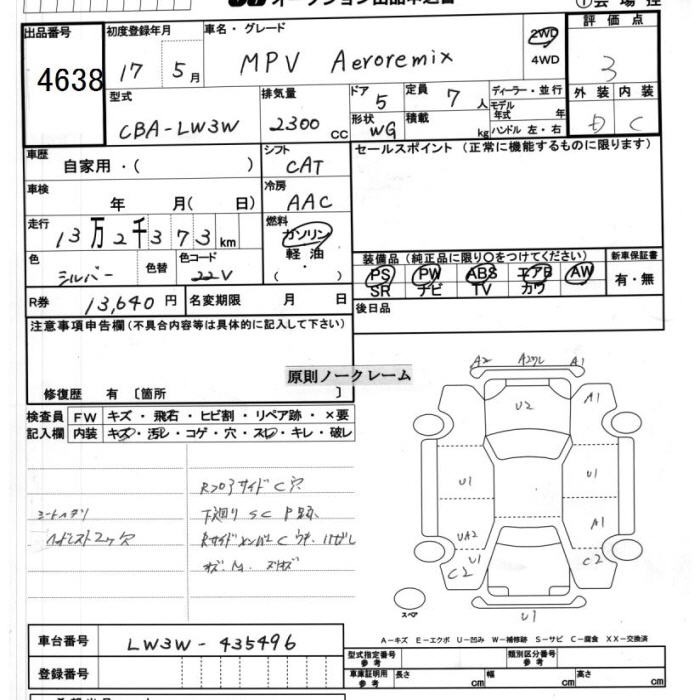 出品番号
4638
初度登録年月
17 5月
車名・グレード
MPV Aeroremix
2WD
4WD
評価点
3
型式
CBA-LW3W
排気量
2300cc
ドア 5
定員 7人
形状 WG
積載 kg
ディーラー・並行
モデル年式 年式
ハンドル 左・右
外装 内装
D C
車歴
自家用・( )
シフト
CAT
セールスポイント (正常に機能するものに限ります)
車検
年 月( 日)
冷房
AAC
走行
13万2千373km
燃料
ガソリン
軽油
( )
色
シルバー
色替
色コード
22V
装備品 (純正品に限り○をつけてください)
新車保証書
PS PW ABS エアB AW
SR ナビ TV カワ
有・無
R券
13,640円
名変期限 月 日
後日品
注意事項申告欄 (不具合内容等は具体的に記入して下さい)
原則ノークレーム
修復歴 有 [箇所 ]
検査員記入欄
FW キズ・飛石・ヒビ割・リペア跡・×要
内装 キズ・汚レ・コゲ・穴・スレ・キレ・破レ
シートヘタリ
下廻り SC
A2 A1
U2 A1
U1 U1
UA2 A1
U1
C2 C2
スペア
U1
A-キズ E-エクボ U-凹み W-補修跡 S-サビ C-腐食 XX-交換済
車台番号
LW3W-435496
登録番号
型式指定番号 参考
類別区分番号 参考
車庫証明用 参考
長さ cm
幅 cm
高さ cm